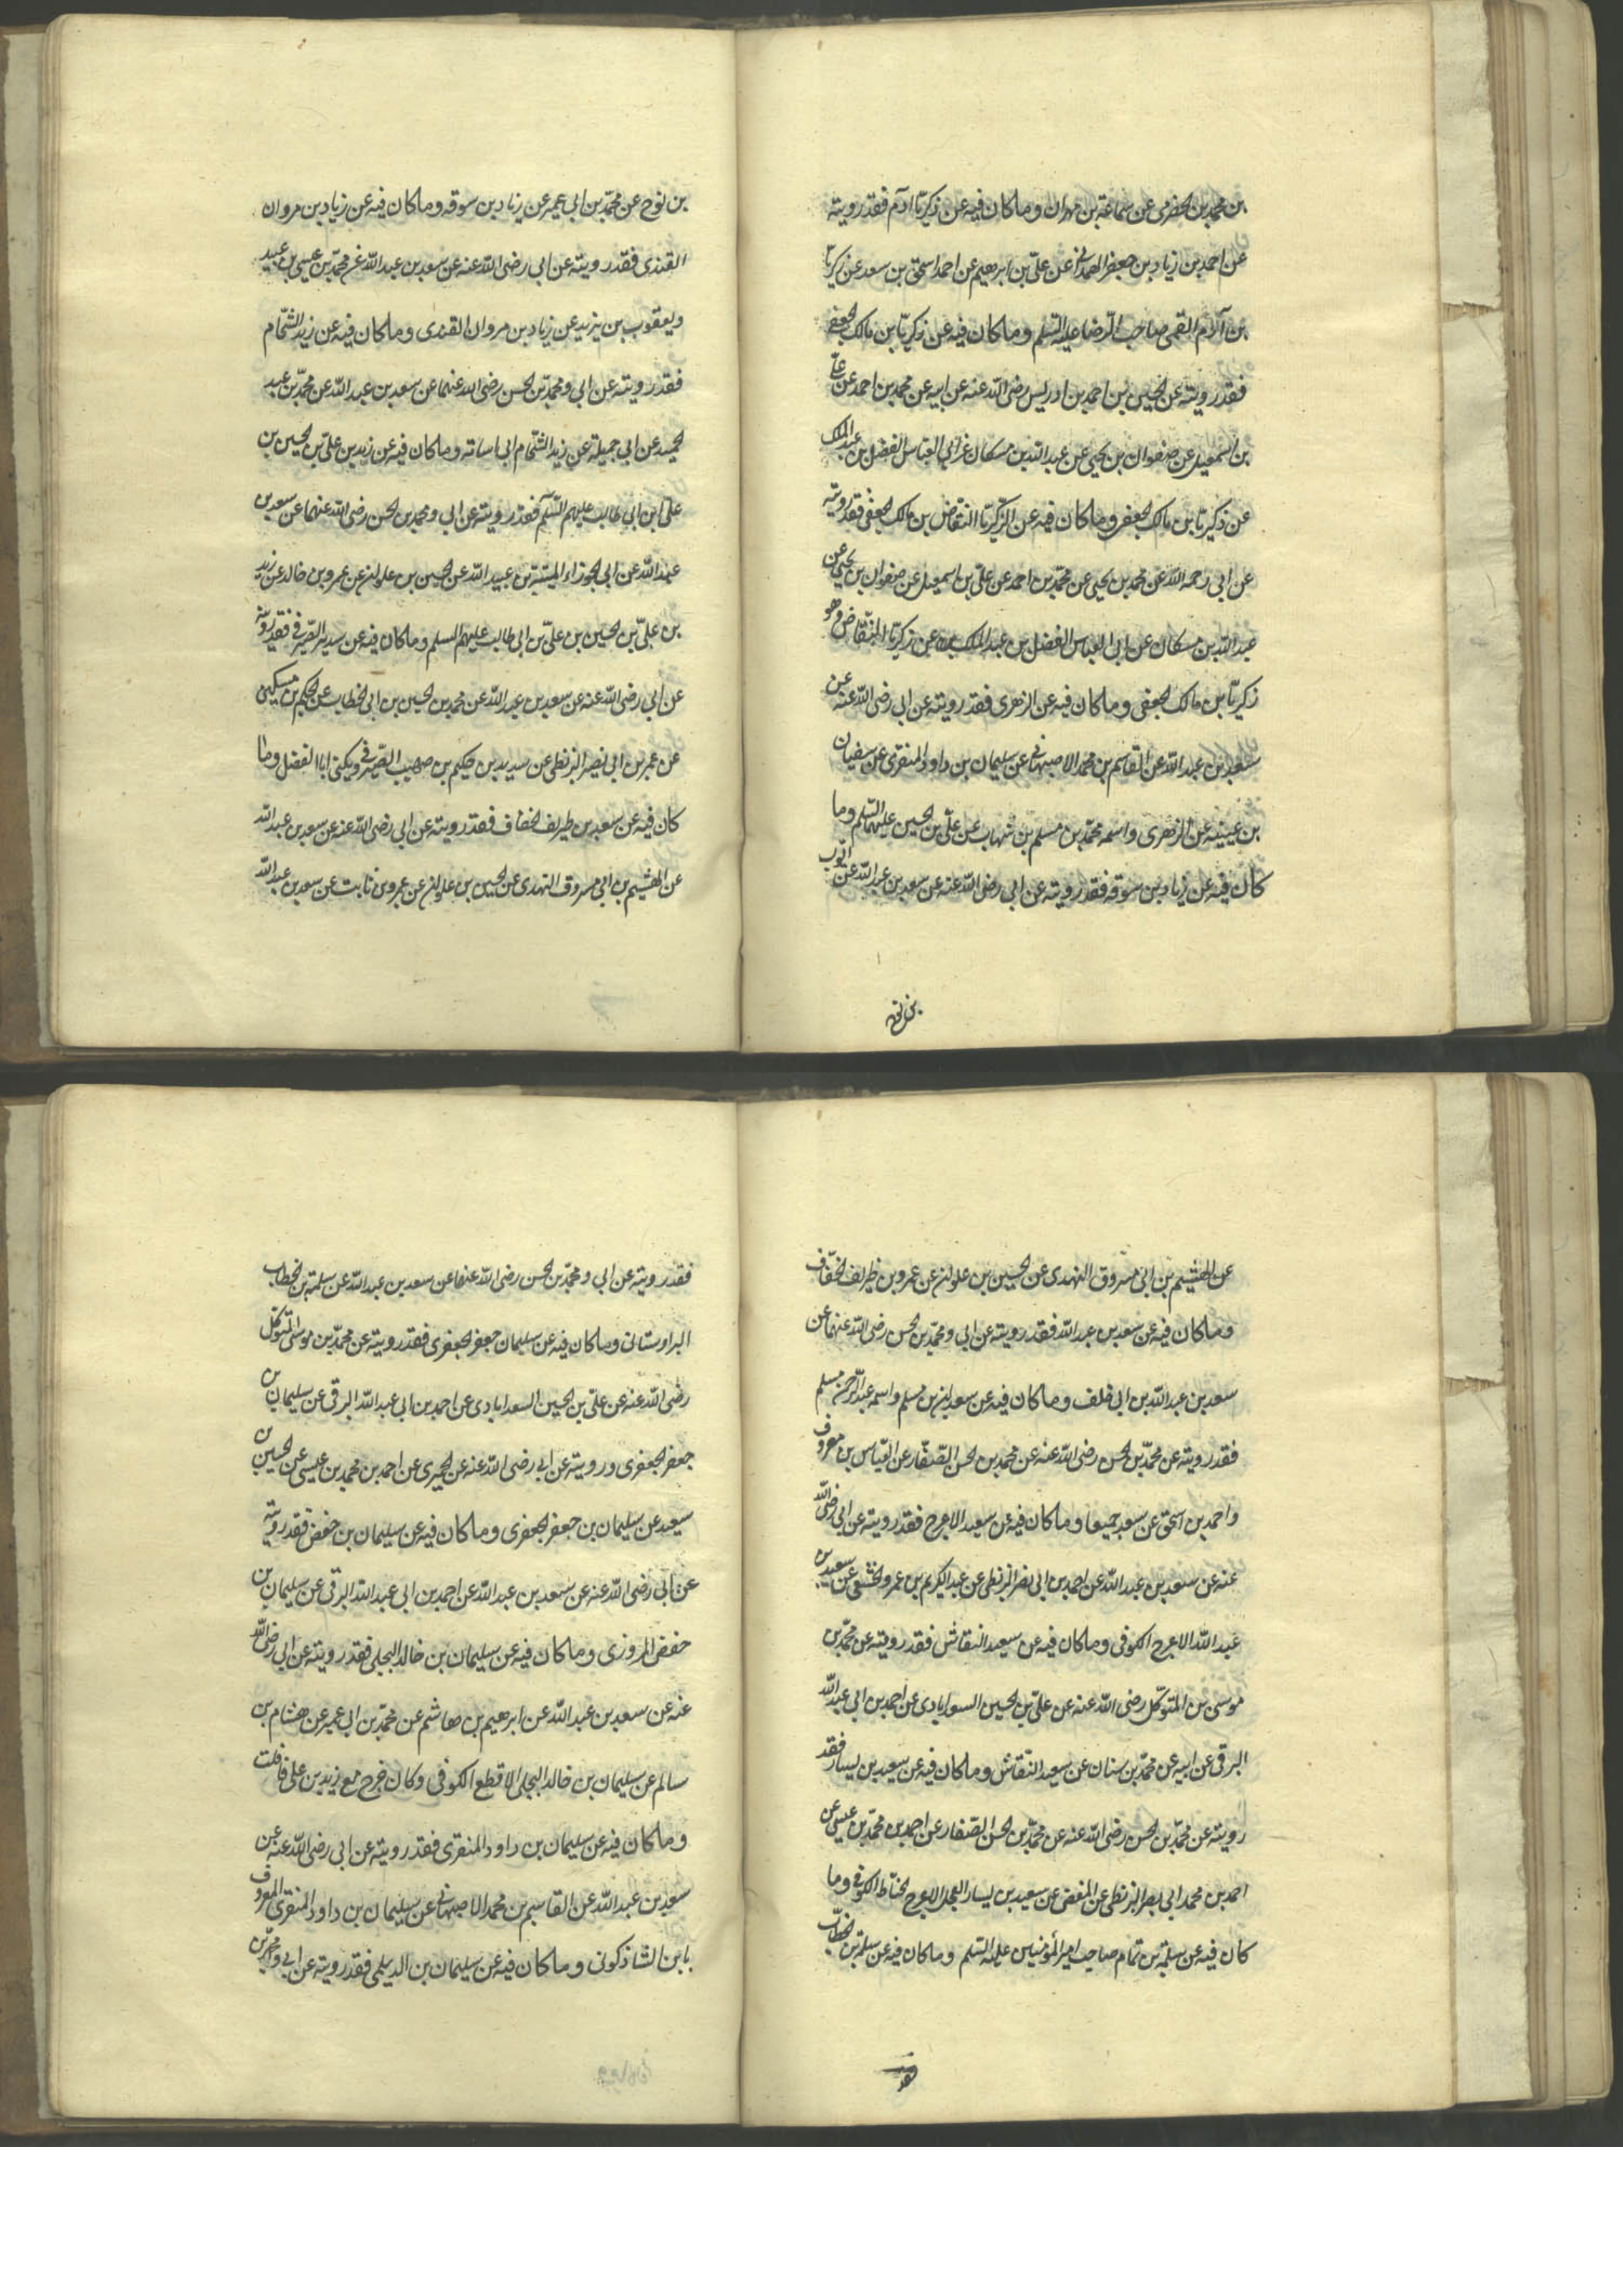 بن محمد بن الحضرمى عن سماعة بن مهران وما كان فيه عن زكريا ادم فقد رويته
عن احمد بن زياد بن جعفر الهمدانى عن علىّ بن ابرهيم عن احمد اسحق بن سعد عن زكريا
بن آدم القمى صاحب الرضا عليه السّلم وما كان فيه عن زكريّا بن مالك الجعفى
فقد رويته عن الحسين بن احمد بن ادريس رضى اللّه عنه عن ابيه عن محمد بن احمد عن علىّ
بن اسمعيل عن صفوان بن يحيى عن عبد اللّه بن مسكان عن ابى العباس الفضل بن عبد الملك
عن زكريّا بن مالك الجعفى وما كان فيه عن الزكريّا النقاض بن مالك الجعفى فقد رويته
عن ابى رحمه اللّه عن محمد بن يحيى عن محمّد بن احمد عن علىّ بن اسمعيل عن صفوان بن يحيى عن
عبد اللّه بن مسكان عن ابى العباس الفضل بن عبد الملك عن زكريّا النقّاض وهو
زكريّا بن مالك الجعفى وما كان فيه عن الزهرى فقد رويته عن ابى رضى اللّه عنه عن
سعد بن عبد اللّه عن القاسم بن محمد الاصبهانى عن سليمان بن داود المنقرى عن سفيان
بن عيينه عن الزهرى واسمه محمّد بن مسلم بن شهاب عن علىّ بن الحسين عليهما السّلم وما
كان فيه عن زياد بن سوقه فقد رويته عن ابى رضى اللّه عنه عن سعد بن عبد اللّه عن ايّوب
بن نوح
بن نوح عن محمّد بن ابى عمير عن زياد بن سوقه وما كان فيه عن زياد بن مروان
القندى فقد رويته عن ابى رضى اللّه عنه عن سعد بن عبد اللّه عن محمّد بن عيسى بن عبيد
ويعقوب بن يزيد عن زياد بن مروان القندى وما كان فيه عن زيد الشحّام
فقد رويته عن ابى ومحمّد بن الحسن رضى اللّه عنهما عن سعد بن عبد اللّه عن محمّد بن عبد
الحميد عن ابى جميلة عن زيد الشّحام ابى اسامه وما كان فيه عن زيد بن علىّ بن الحسين بن
على ابن ابى طالب عليهم السّلم فقد رويته عن ابى ومحمد بن الحسن رضى اللّه عنهما عن سعد بن
عبد اللّه عن ابى الجوزاء المنبّه بن عبيد اللّه عن الحسين بن علوان عن عمرو بن خالد عن زيد
بن علىّ بن الحسين بن علىّ بن ابى طالب عليهم السلم وما كان فيه عن سدير الصّيرفى فقد رويته
عن ابى رضى اللّه عنه عن سعد بن عبد اللّه عن محمد بن الحسين بن ابى الخطاب عن الحكم بن مسكين
عن عمر بن ابى نصر البزنطى عن سدير بن حكيم بن صهيب الصّيرفى ويكنى ابا الفضل وما
كان فيه عن سعد بن طريف الخفاف فقد رويته عن ابى رضى اللّه عنه عن سعد بن عبد اللّه
عن الهيثم بن ابى مسروق النهدى عن الحسين بن علوان عن عمرو بن ثابت عن سعد بن عبد اللّه
عن الهيثم بن ابى مسروق النهدى عن الحسين بن علوان عن عمرو بن ظريف الخفّاف
وما كان فيه عن سعد بن عبد اللّه فقد رويته عن ابى ومحمّد بن الحسن رضى اللّه عنهما عن
سعد بن عبد اللّه بن ابى خلف وما كان فيه عن سعدان بن مسلم واسمه عبد الرحمن بن مسلم
فقد رويته عن محمّد بن الحسن رضى اللّه عنه عن محمد بن الحسن الصّفّار عن العبّاس بن معروف
واحمد بن اسحق عن سعد جميعا وما كان فيه عن سعيد الاعرج فقد رويته عن ابى رضى اللّه
عنه عن سعد بن عبد اللّه عن احمد بن ابى نصر البزنطى عن عبد الكريم بن عمرو الخثعمى عن سعيد بن
عبد اللّه الاعرج الكوفى وما كان فيه عن سعيد النقاش فقد رويته عن محمّد بن
موسى بن المتوكّل رضى اللّه عنه عن علىّ بن الحسين السعدابادى عن احمد بن ابى عبد اللّه
البرقى عن ابيه عن محمّد بن سنان عن سعيد النّقاش وما كان فيه عن سعيد بن يسار فقد
رويته عن محمّد بن الحسن رضى اللّه عنه عن محمّد بن الحسن الصّفار عن احمد بن محمّد بن عيسى عن
احمد بن محمد ابى نصر البزنطى عن المفضل عن سعيد بن يسار العجلى الاعرج الحنّاط الكوفى وما
كان فيه عن سلمة بن تمام صاحب امير المؤمنين عليه السّلم وما كان فيه عن سلمة بن الخطّاب
فقد
فقد رويته عن ابى ومحمّد بن الحسن رضى اللّه عنهما عن سعد بن عبد اللّه عن سلمة بن الخطاب
البراوستانى وما كان فيه عن سليمان جعفر الجعفرى فقد رويته عن محمّد بن موسى المتوكّل
رضى اللّه عنه عن علىّ بن الحسين السعدابادى عن احمد بن ابى عبد اللّه البرقى عن سليمان بن
جعفر الجعفرى ورويته عن ابى رضى اللّه عنه عن الحميرى عن احمد بن محمد بن عيسى عن الحسين بن
سعيد عن سليمان بن جعفر الجعفرى وما كان فيه عن سليمان بن حفص فقد رويته
عن ابى رضى اللّه عنه عن سعد بن عبد اللّه عن احمد بن ابى عبد اللّه البرقى عن سليمان بن
حفص المروزى وما كان فيه عن سليمان بن خالد البجلى فقد رويته عن ابى رضى اللّه
عنه عن سعد بن عبد اللّه عن ابرهيم بن هاشم عن محمّد بن ابى عمير عن هشام بن
سالم عن سليمان بن خالد البجلى الاقطع الكوفى وكان خرج مع زيد بن على فافلت
وما كان فيه عن سليمان بن داود المنقرى فقد رويته عن ابى رضى اللّه عنه عن
سعد بن عبد اللّه عن القاسم بن محمد الاصبهانى عن سليمان بن داود المنقرى المعروف
بابن الشاذكونى وما كان فيه عن سليمان بن الديلمى فقد رويته عن ابى ومحمّد بن